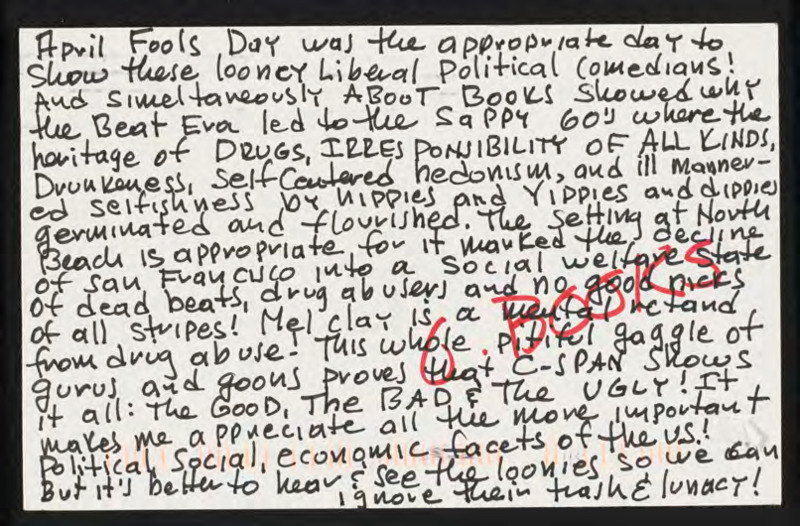 April Fools Day was the appropriate day to
show these looney Liberal Political Comedians!
And simeltaneously ABOUT BOOKS showed why
the Beat Era led to the Sappy 60's where the
heritage of DRUGS, IRRESPONSIBILITY OF ALL KINDS,
Drunkeness, Self Centered hedonism, and ill Manner-
ed selfishness by Hippies and Yippies and dippies
germinated and flourished. The setting at North
Beach is appropriate for it marked the decline
of San Francisco into a Social Welfare State
of dead beats, drug abusers and no good nicks
of all stripes! Mel Clay is a mental retard
from drug abuse. This whole pitiful gaggle of
gurus and goons proves that C-SPAN shows
it all: The GOOD, The BAD & The UGLY! It
makes me appreciate all the more important
Political, Social, economic facets of the US!
But it's better to hear & see the loonies so we can
ignore their trash & lunacy!
6. BOOKS